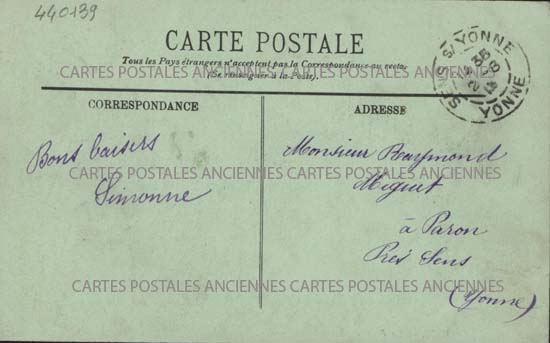 440139
CARTE POSTALE
Tous les Pays étrangers n'acceptent pas la Correspondance au recto.
(Se renseigner à la Poste).
CARTES POSTALES ANCIENNES CARTES POSTALES ANCIENNES
CORRESPONDANCE
Bons baisers
Simonne
ADRESSE
Monsieur Raymond
Miguet
à Paron
Près Sens
(Yonne)
CARTES POSTALES ANCIENNES CARTES POSTALES ANCIENNES
CARTES POSTALES ANCIENNES CARTES POSTALES ANCIENNES
SENS S/YONNE
YONNE